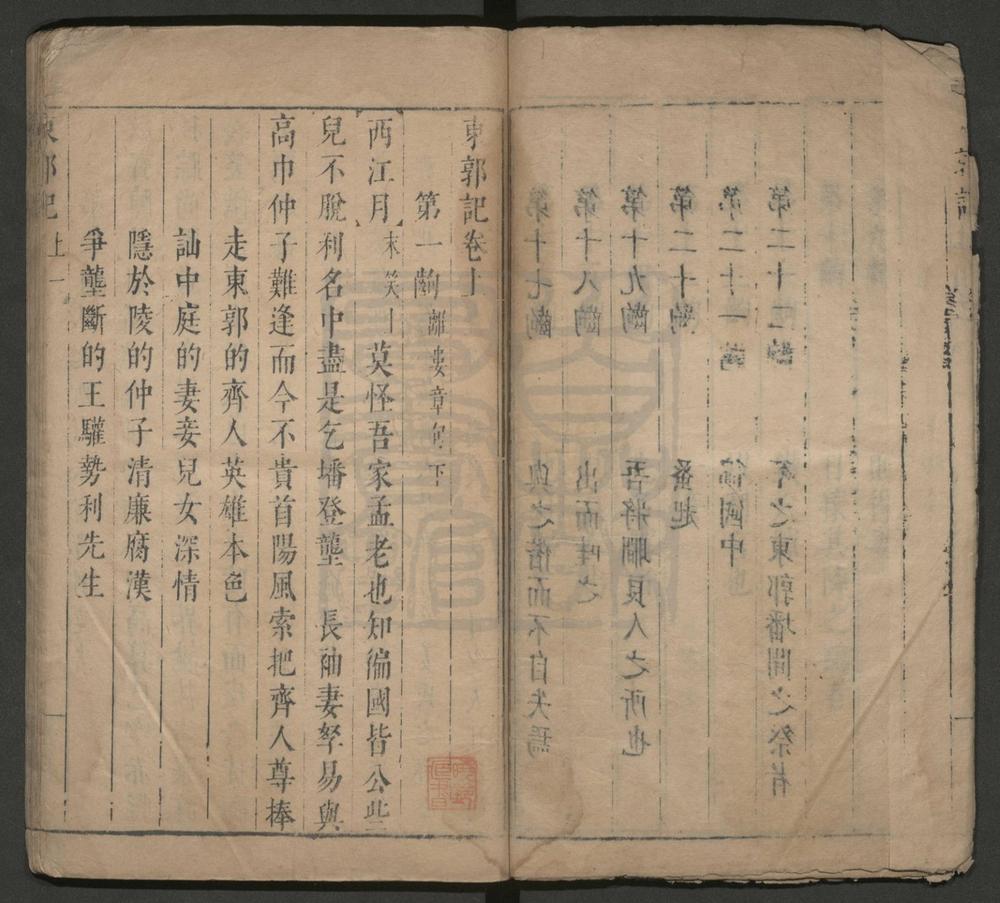 第十七齣 與之偕而不自失焉
第十八齣 出而哇之
第十九齣 吾將瞷良人之所也
第二十齣 蚤起
第二十一齣 徧國中
第二十二齣 卒之東郭墦間之祭者
東郭記卷上
第一齣 離婁章句下
西江月 末笑上 莫怪吾家孟老也知徧國皆公些
兒不脫利名中盡是乞墦登壟 長袖妻孥易與
高巾仲子難逢而今不貴首陽風索把齊人尊捧
走東郭的齊人英雄本色
訕中庭的妻妾兒女深情
隱於陵的仲子清廉腐漢
爭壟斷的王驩勢利先生
東郭記 上 一